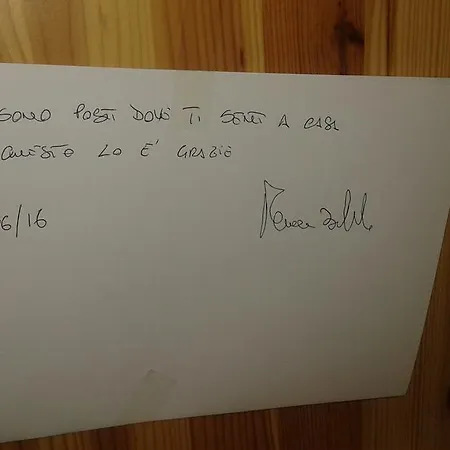 SONO POSTI DOVE TI SENTI A CASA
QUESTO LO E' GRAZIE
6/16